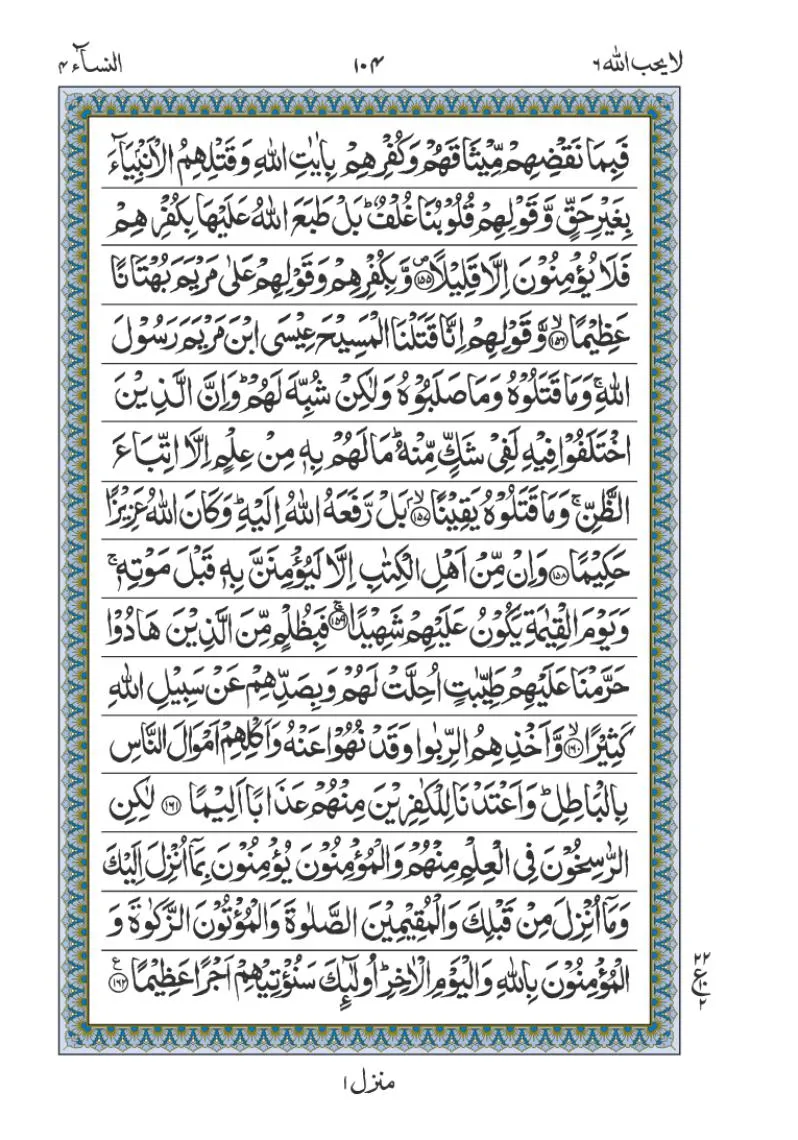 لا يحب الله ٦
١٠٤
النسآء ٤
فَبِمَا نَقْضِهِمْ مِّيْثَاقَهُمْ وَكُفْرِهِمْ بِاٰيٰتِ اللّٰهِ وَقَتْلِهِمُ الْاَنْۢبِيَآءَ
بِغَيْرِ حَقٍّ وَّقَوْلِهِمْ قُلُوْبُنَا غُلْفٌ ؕ بَلْ طَبَعَ اللّٰهُ عَلَيْهَا بِكُفْرِهِمْ
فَلَا يُؤْمِنُوْنَ اِلَّا قَلِيْلًا ۪﴿۱۵۵﴾ وَّبِكُفْرِهِمْ وَقَوْلِهِمْ عَلٰى مَرْيَمَ بُهْتَانًا
عَظِيْمًا ۙ﴿۱۵۶﴾ وَّقَوْلِهِمْ اِنَّا قَتَلْنَا الْمَسِيْحَ عِيْسَى ابْنَ مَرْيَمَ رَسُوْلَ
اللّٰهِ ۚ وَمَا قَتَلُوْهُ وَمَا صَلَبُوْهُ وَلٰكِنْ شُبِّهَ لَهُمْ ؕ وَاِنَّ الَّذِيْنَ
اخْتَلَفُوْا فِيْهِ لَفِيْ شَكٍّ مِّنْهُ ؕ مَا لَهُمْ بِهٖ مِنْ عِلْمٍ اِلَّا اتِّبَاعَ
الظَّنِّ ۚ وَمَا قَتَلُوْهُ يَقِيْنًۢا ۙ﴿۱۵۷﴾ بَلْ رَّفَعَهُ اللّٰهُ اِلَيْهِ ؕ وَكَانَ اللّٰهُ عَزِيْزًا
حَكِيْمًا ﴿۱۵۸﴾ وَاِنْ مِّنْ اَهْلِ الْكِتٰبِ اِلَّا لَيُؤْمِنَنَّ بِهٖ قَبْلَ مَوْتِهٖ ۚ
وَيَوْمَ الْقِيٰمَةِ يَكُوْنُ عَلَيْهِمْ شَهِيْدًا ۚ﴿۱۵۹﴾ فَبِظُلْمٍ مِّنَ الَّذِيْنَ هَادُوْا
حَرَّمْنَا عَلَيْهِمْ طَيِّبٰتٍ اُحِلَّتْ لَهُمْ وَبِصَدِّهِمْ عَنْ سَبِيْلِ اللّٰهِ
كَثِيْرًا ۙ﴿۱۶۰﴾ وَّاَخْذِهِمُ الرِّبٰوا وَقَدْ نُهُوْا عَنْهُ وَاَكْلِهِمْ اَمْوَالَ النَّاسِ
بِالْبَاطِلِ ؕ وَاَعْتَدْنَا لِلْكٰفِرِيْنَ مِنْهُمْ عَذَابًا اَلِيْمًا ﴿۱۶۱﴾ لٰكِنِ
الرّٰسِخُوْنَ فِي الْعِلْمِ مِنْهُمْ وَالْمُؤْمِنُوْنَ يُؤْمِنُوْنَ بِمَآ اُنْزِلَ اِلَيْكَ
وَمَآ اُنْزِلَ مِنْ قَبْلِكَ وَالْمُقِيْمِيْنَ الصَّلٰوةَ وَالْمُؤْتُوْنَ الزَّكٰوةَ وَ
الْمُؤْمِنُوْنَ بِاللّٰهِ وَالْيَوْمِ الْاٰخِرِ ؕ اُولٰٓئِكَ سَنُؤْتِيْهِمْ اَجْرًا عَظِيْمًا ﴿۱۶۲﴾ ع
٢٢
ع
١٠
٢
منزل ١